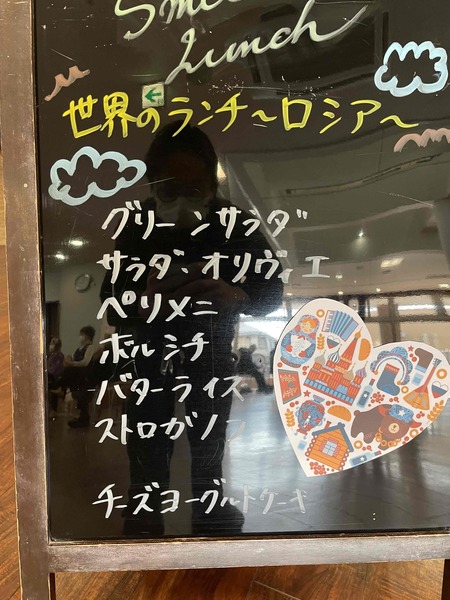 Lunch
世界のランチ～ロシア～
グリーンサラダ
サラダ・オリヴィエ
ペリメニ
ボルシチ
バターライス
ストロガノフ
チーズヨーグルトケーキ